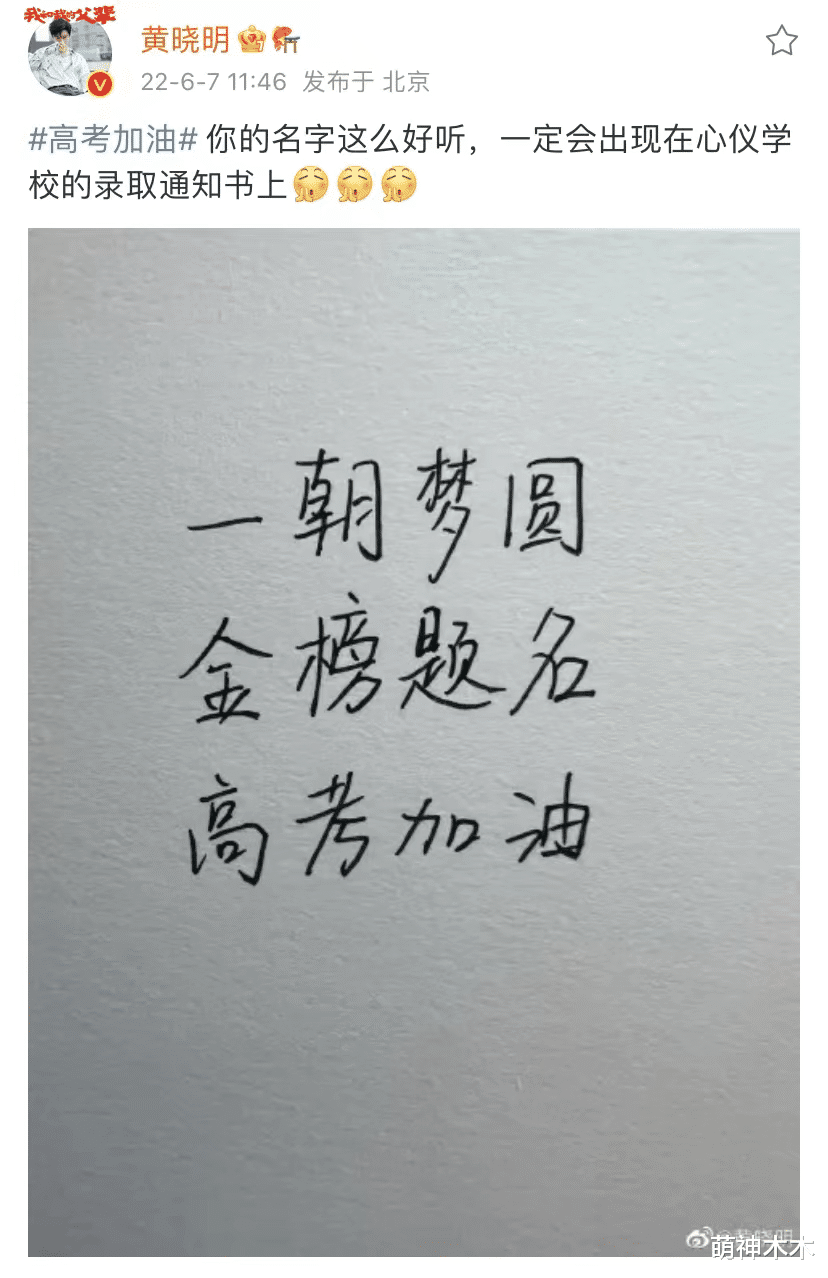 我和我的父辈
黄晓明
22-6-7 11:46 发布于 北京
#高考加油# 你的名字这么好听，一定会出现在心仪学
校的录取通知书上
一朝梦圆
金榜题名
高考加油
@黄晓明
萌神木木